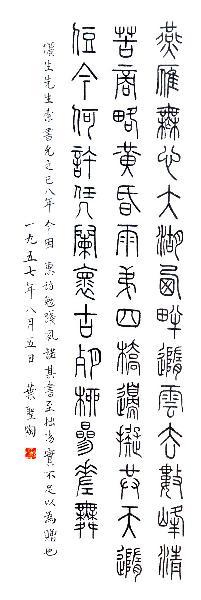 燕雁無心大湖西畔隨雲去數峰清
苦商略黃昏雨弟四橋邊擬共天隨
住今何許凭闌褱古殘柳參差舞
生先生索書允之已八年今因惠訪勉踐夙諾其書至拙實不足以為贈也
一九五七年八月五日 葉聖陶